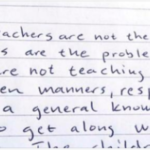 teachers are not the
s are the proble
are not teaching
en manners, resp
a general know
o get along w
The childr